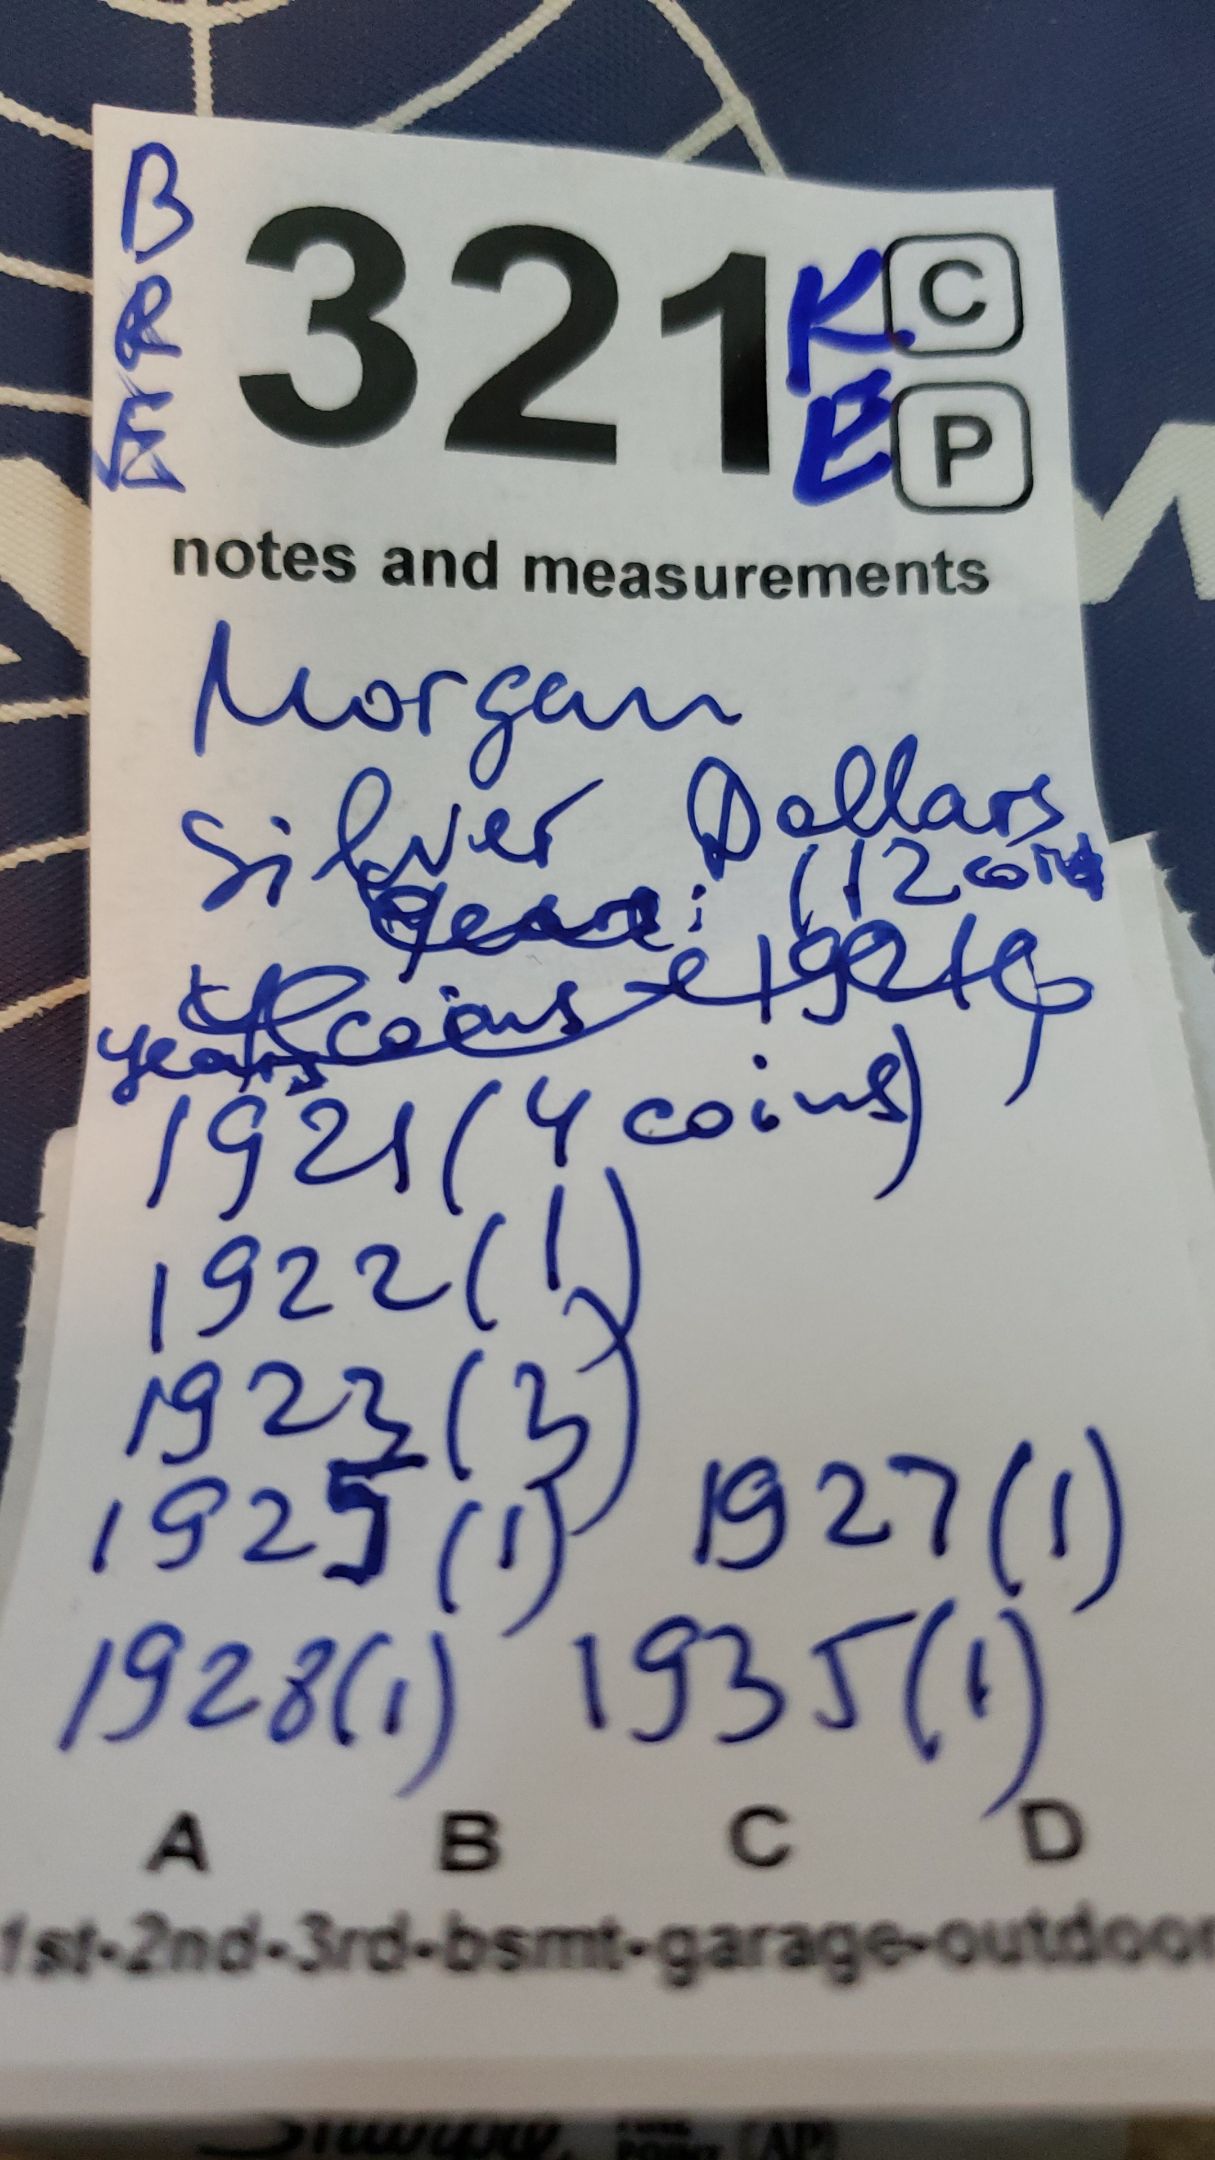 B
R
E
321 K. C
E P
notes and measurements
Morgan
Silver Dollars
(12 coins
years
1921 (4 coins)
1922 (1)
1923 (3)
1925 (1) 1927 (1)
1928 (1) 1935 (1)
A B C D
1st-2nd-3rd-bsmt-garage-outdoor